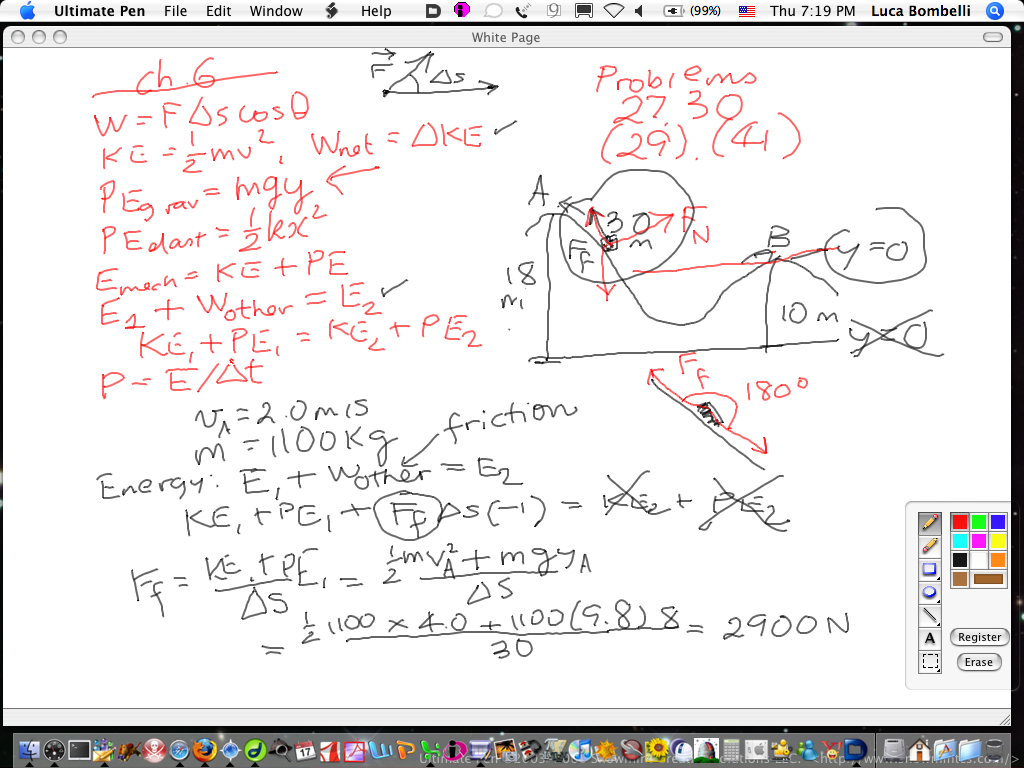 Ultimate Pen File Edit Window Help (99%) Thu 7:19 PM Luca Bombelli
White Page
ch. 6
W = F Δs cos θ
KE = 1/2 mv², Wnet = ΔKE ✓
PEgrav = mgy
PEelast = 1/2 kx²
Emech = KE + PE
E1 + Wother = E2 ✓
KE1 + PE1 = KE2 + PE2
P = E/Δt
F Δs
Problems
27, 30
(29), (41)
A
30 m
FN
Ff
B
y = 0
18 m
10 m
y = 0
Ff
180°
vA = 2.0 m/s
m = 1100 kg
friction
Energy: E1 + Wother = E2
KE1 + PE1 + Ff Δs (-1) = KE2 + PE2
Ff = KE1 + PE1 / Δs = 1/2 mvA² + mgyA / Δs
= 1/2 1100 × 4.0 + 1100 (9.8) 8 / 30 = 2900 N
A
Register
Erase
17